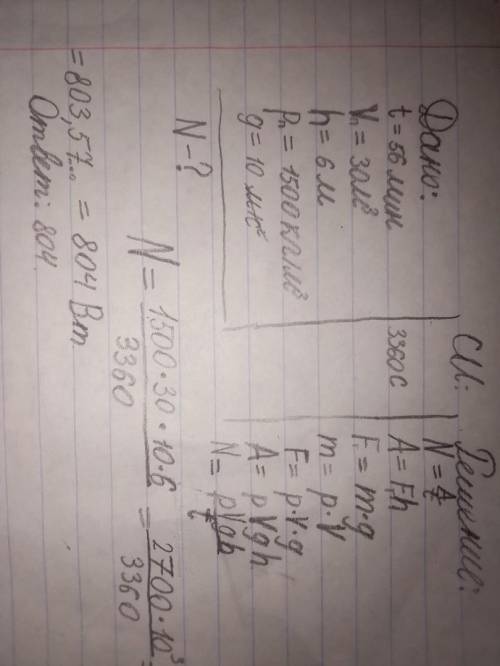 Дано:
t = 56 мин
Vп = 30м³
h = 6 м
ρп = 1500 кг/м³
g = 10 м/с²
N - ?
СИ:
3360 с
Решение:
N = A/t
A = F·h
F = m·g
m = ρ·V
F = ρ·V·g
A = ρVgh
N = ρVgh/t
N = 1500·30·10·6/3360 = 2700·10³/3360 =
= 803,57... = 804 Вт
Ответ: 804